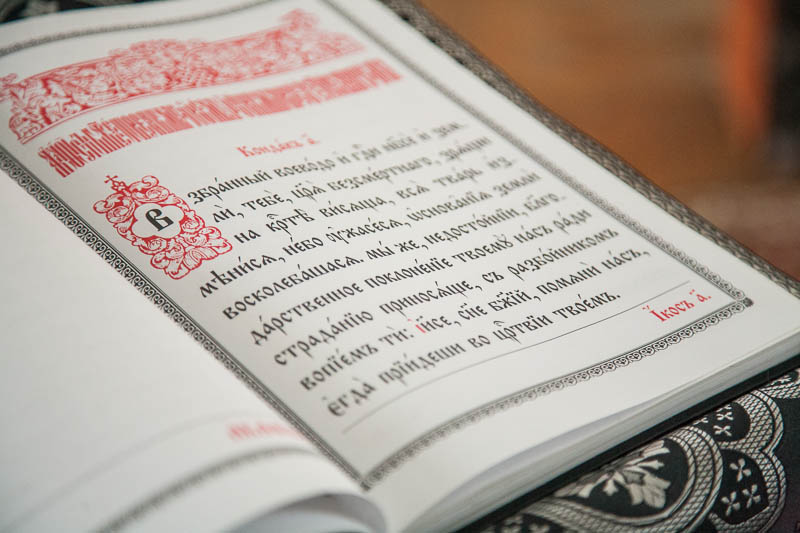 Конда́къ а҃.
Взбра́нный воево́до и҆ гдⷭ҇и нб҃сѐ и҆ зем-
лѝ, тебѐ, цр҃ѧ̀ безсме́ртнаго, зрѧ́щи
на крⷭ҇тѣ̀ ви́сѧща, всѧ̀ тва́рь и҆з-
мѣни́сѧ, не́бо ᲂу҆жасе́сѧ, ѡ҆снова̑нїѧ землѝ
восколеба́шасѧ. мы́ же, недосто́йнїи, благо-
да́рственное поклоне́нїе твоемꙋ̀ на́съ ра́ди
страда́нїю принося́ще, съ разбо́йникомъ
вопїе́мъ тѝ: і҆и҃се, сн҃е бж҃їй, помѧнѝ на́съ,
є҆гда̀ прїи́деши во црⷭ҇твїи твое́мъ.
І҆́косъ а҃.